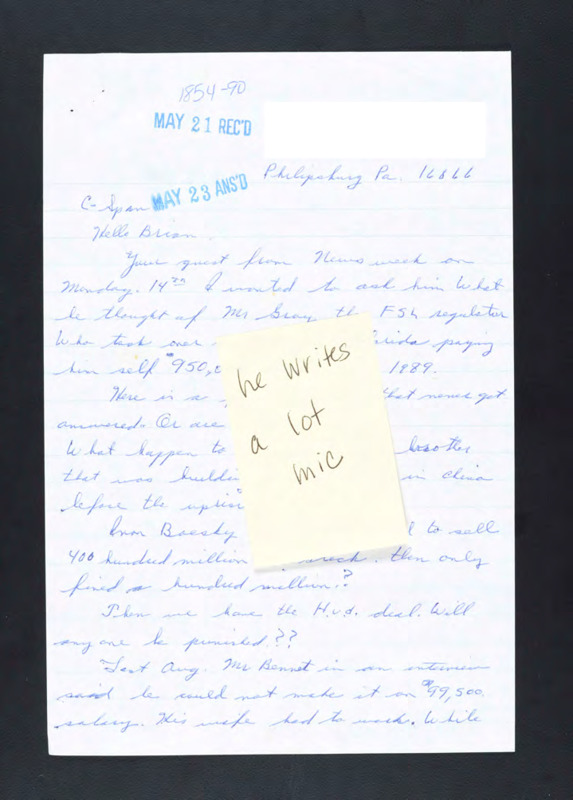 1854-90
MAY 21 REC'D
Philipsburg Pa. 16866
MAY 23 ANS'D
C-Span
Hello Brian.
Your guest from News week on
Monday. 14th I wanted to ask him What
he thought of Mr Gray the FSL regulator
Who took over paying
him self $950, 1989.
Here is a that never got
answered. Or are
What happen to brother
that was buildin in china
before the upris
Ivan Boesky to sell
400 hundred million then only
fined a hundred million?
Then we have the H.u.d. deal. Will
any one be punished??
Last Aug. Mr Bennet in an interview
said he could not make it on $99,500.
salary. His wife had to work. While
he writes
a lot
mic